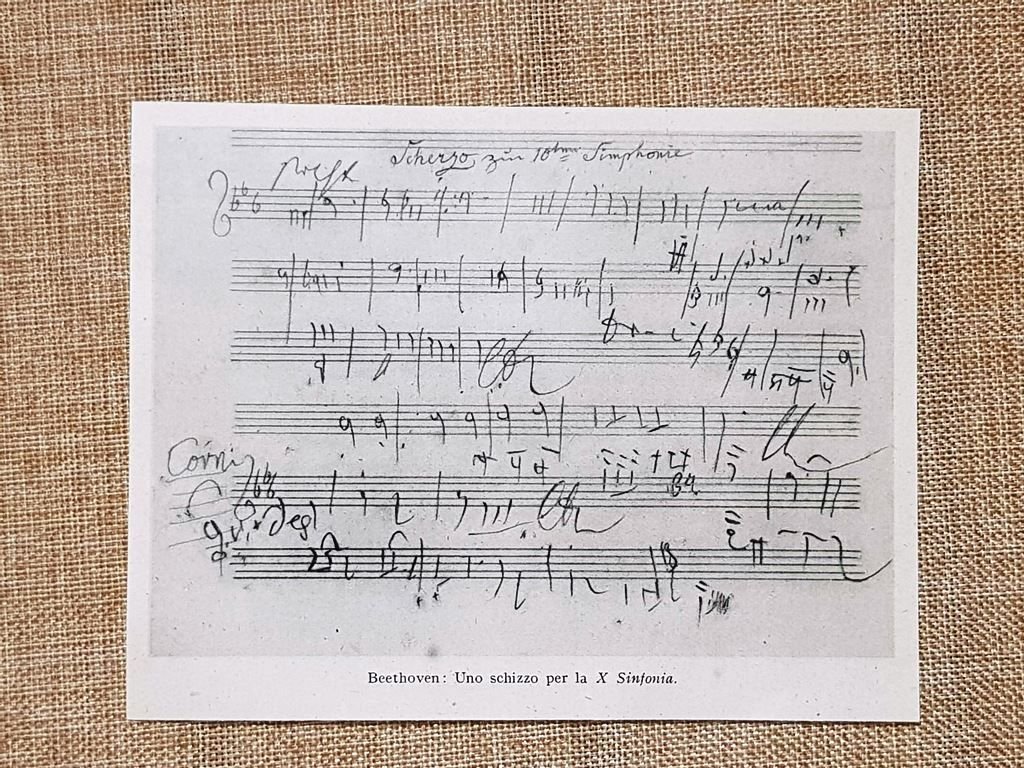 Scherzo zur 10ten Simphonie
presto
Corni
Beethoven: Uno schizzo per la X Sinfonia.